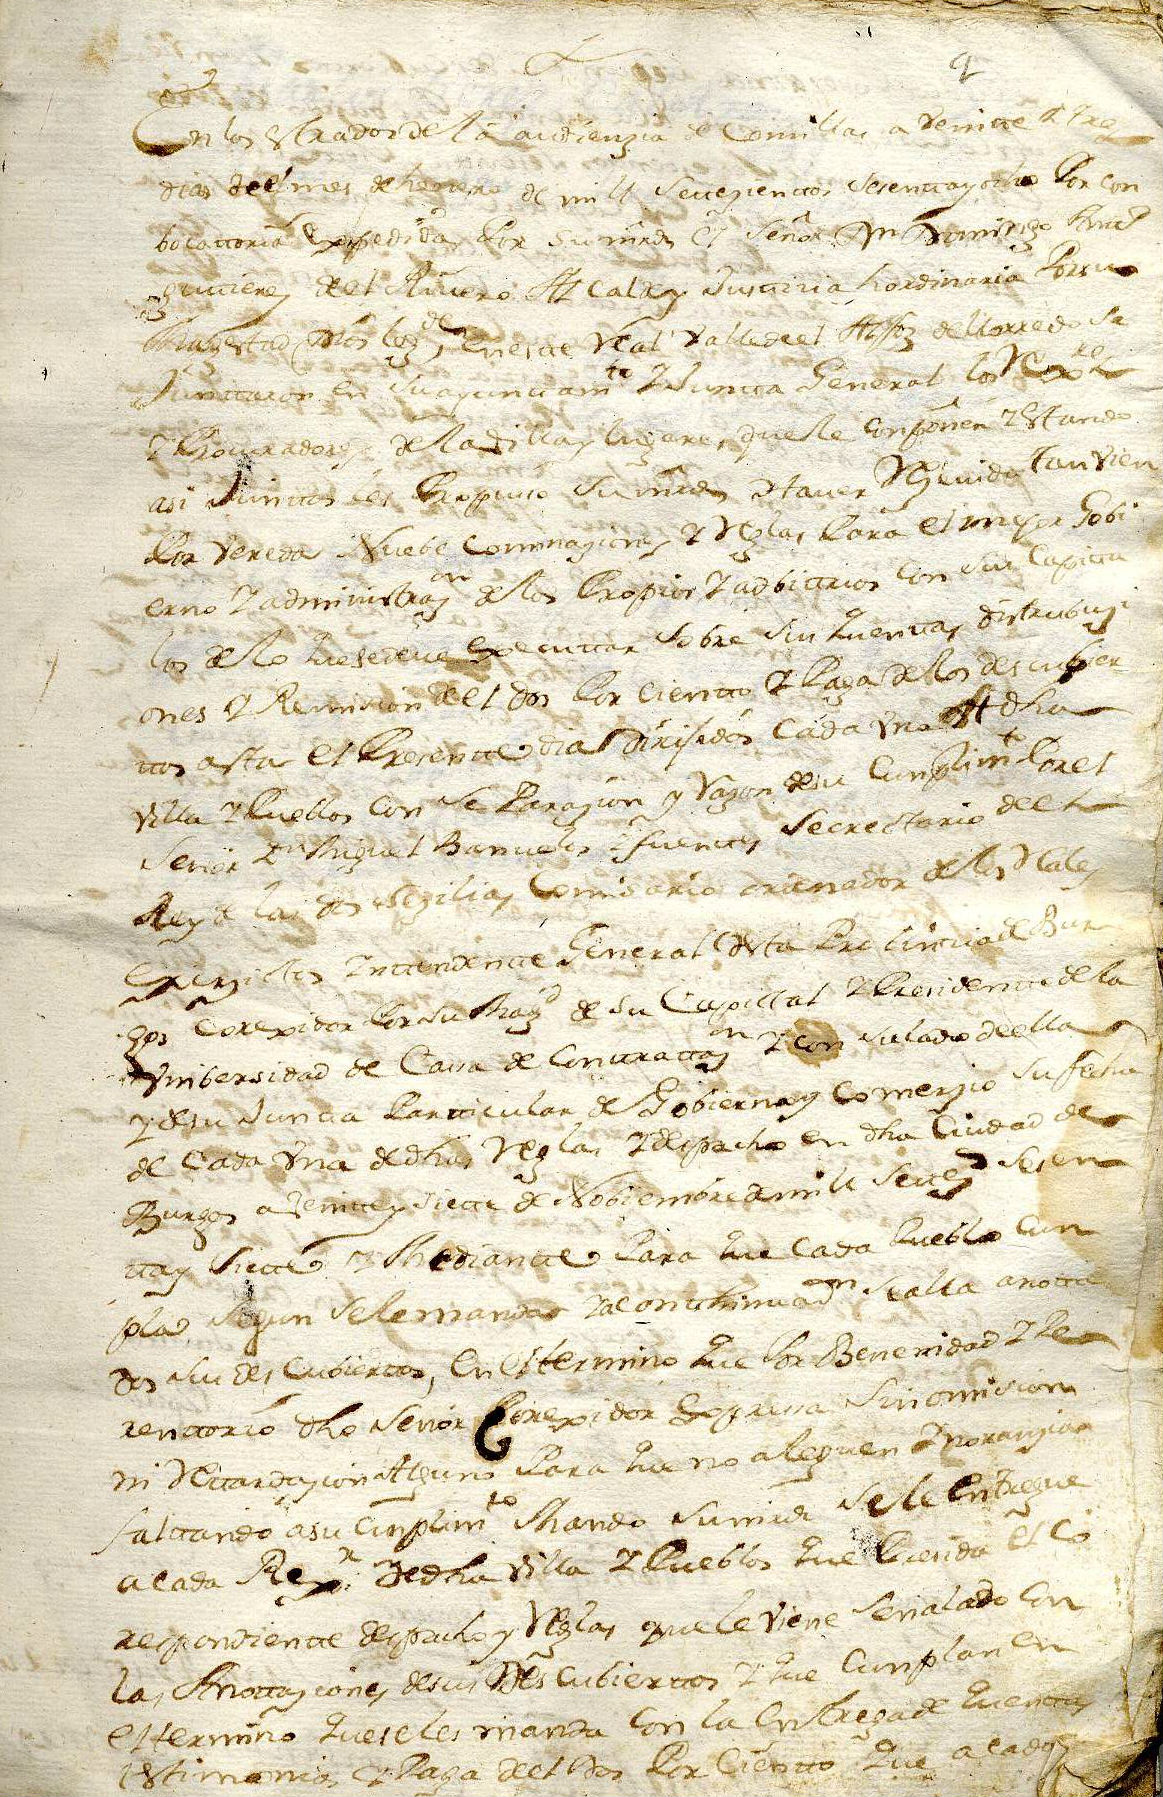 2
En los estrados de la audienzia de Comillas a veintte y tres
dias deel mes de henero de mill settezienttos sesenttay ocho Por con
bocattoria expedida Por su mrd el Señor Dn Domingo
guttierez del Rivero Alcalde y Justtizia hordinaria Por su
Magestad en estte Real Valle deel Alfoz de Lloredo se
Junttaron en su ayunttamto y Juntta General los Rexres
y Procuradores de la villa y lugares que le componen y estando
asi Junttos les Propuso su mrd haver Rezivido tanvien
Por vereda Nuebe Comnazions y Reglas Para el mejor Gobi
erno y administrazon de los Propios y adbittrios con sus Capittu
los de lo que se deve executtar sobre sus quenttas distribuzi
ones y Remision deel dos Por cientto y Paga de los descubier
ttos asta el Presentte dia dirijidos Cada uno A dha
villa y Pueblos con separazion y razon de su Cunplimto Por el
Señor Dn Miguel Bañuelos y fuentes Secrectario deel
Rey de las dos sezilias Comisario ordenador de los Rales
exerzittos Inttendentte General desta Provinzia de Bur
gos Corexidor Por su Magd de su Capittal y Presidentte de la
Unibersidad de Casa de Conttrattazon y Consulado de ella
y de su Juntta Partticular de Gobierno y Comerzio su fecha
de Cada una de dhas Reglas y despacho en dha Ciudad de
Burgos a veintte y siette de Nobiembre de mill settezs sesen
ttay siette y Mediantte Para que Cada Pueblo Cun
pla segun se le manda y a conttinuazon se alla anotta
dos sus descubiertos, en el termino que Por Benenidad y Pe
renttorio dho Señor Corexidor expresa sin omision
ni rettardazion Alguno Para que no aleguen Ynoranzia
falttando a su Cunplimto Mando su mrd se le entregue
a cada Rexr de dha villa y Pueblos que Presida el Co
respondientte despacho y Reglas que le viene señalado con
las Anottaziones de sus descubierttos y que Cunplan en
el termino que se les manda con la entrega de quenttas
testimonios y Paga deel dos Por Cientto que a cada